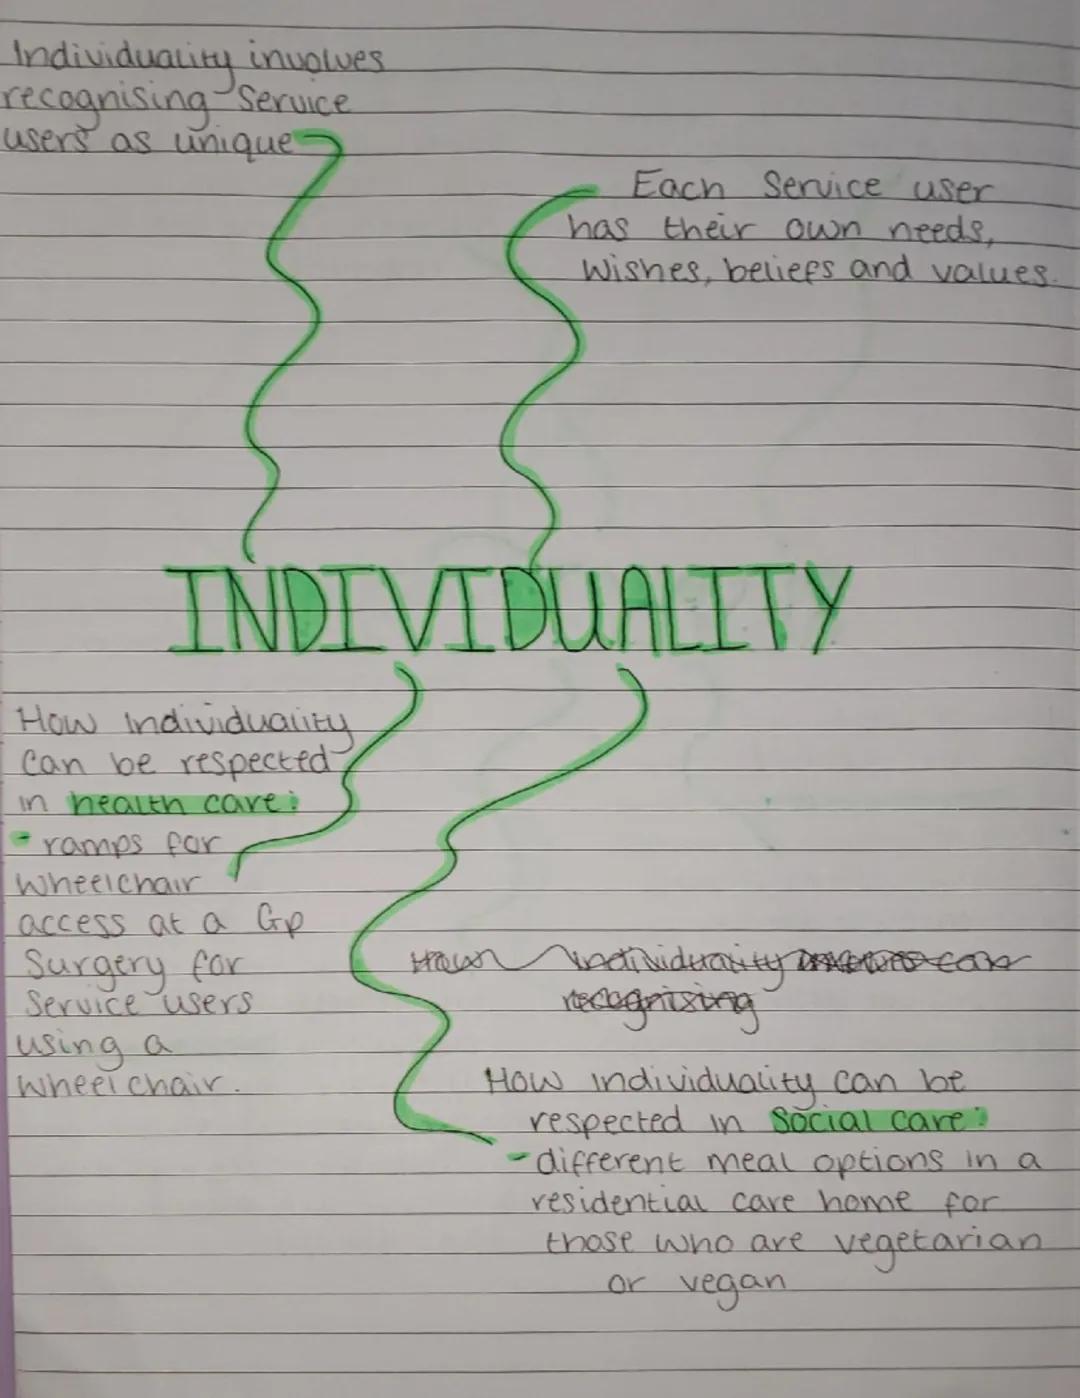 Individuality involves
recognising Service
users as unique
Each Service user
has their own needs,
wishes, beliefs and values.
INDIVIDUALITY
How individuality
can be respected
in health care:
- ramps for
wheelchair
access at a Gp
Surgery for
Service users
using a
wheelchair.
How individuality can
recognising
How individuality can be
respected in Social care:
- different meal options in a
residential care home for
those who are vegetarian
or vegan